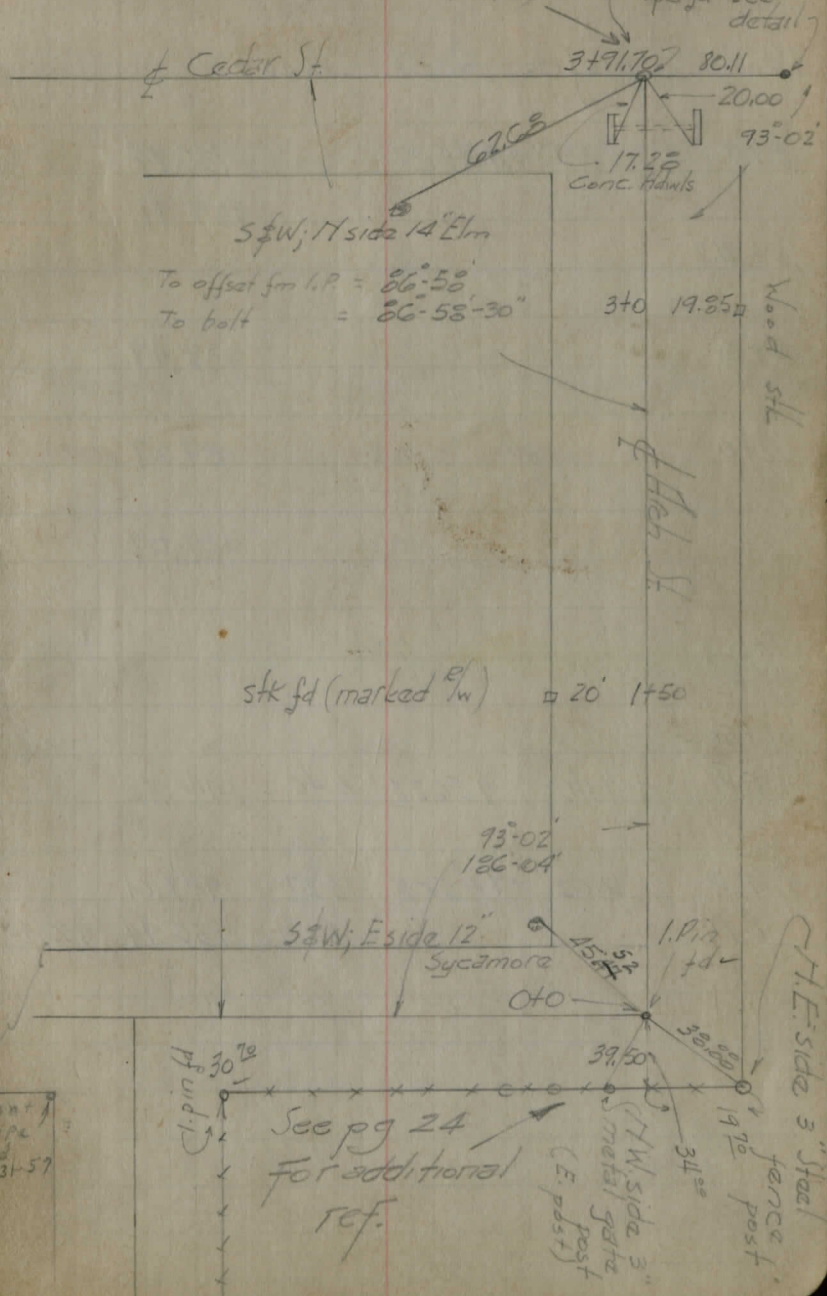 detail
℄ Cedar St.
3+91.70
80.11
20.00
93°-02'
62.68
17.28
Conc. Hdwls
S&W; N side 14" Elm
To offset fm I.P. = 86°-58'
To bolt = 86°-58'-30"
3+0 19.85
Wood stk
℄ St.
stk fd (marked R/W)
20' 1+50
93°-02'
186-04'
S&W; E side 12"
Sycamore
45.52
I.Pin
fd
0+0
38.00
39.50
30.70
See pg 24
For additional
ref.
N.W. side 3"
metal gate
post
(E. post)
34.00
19.70
N.E. side 3" Steel
fence
post